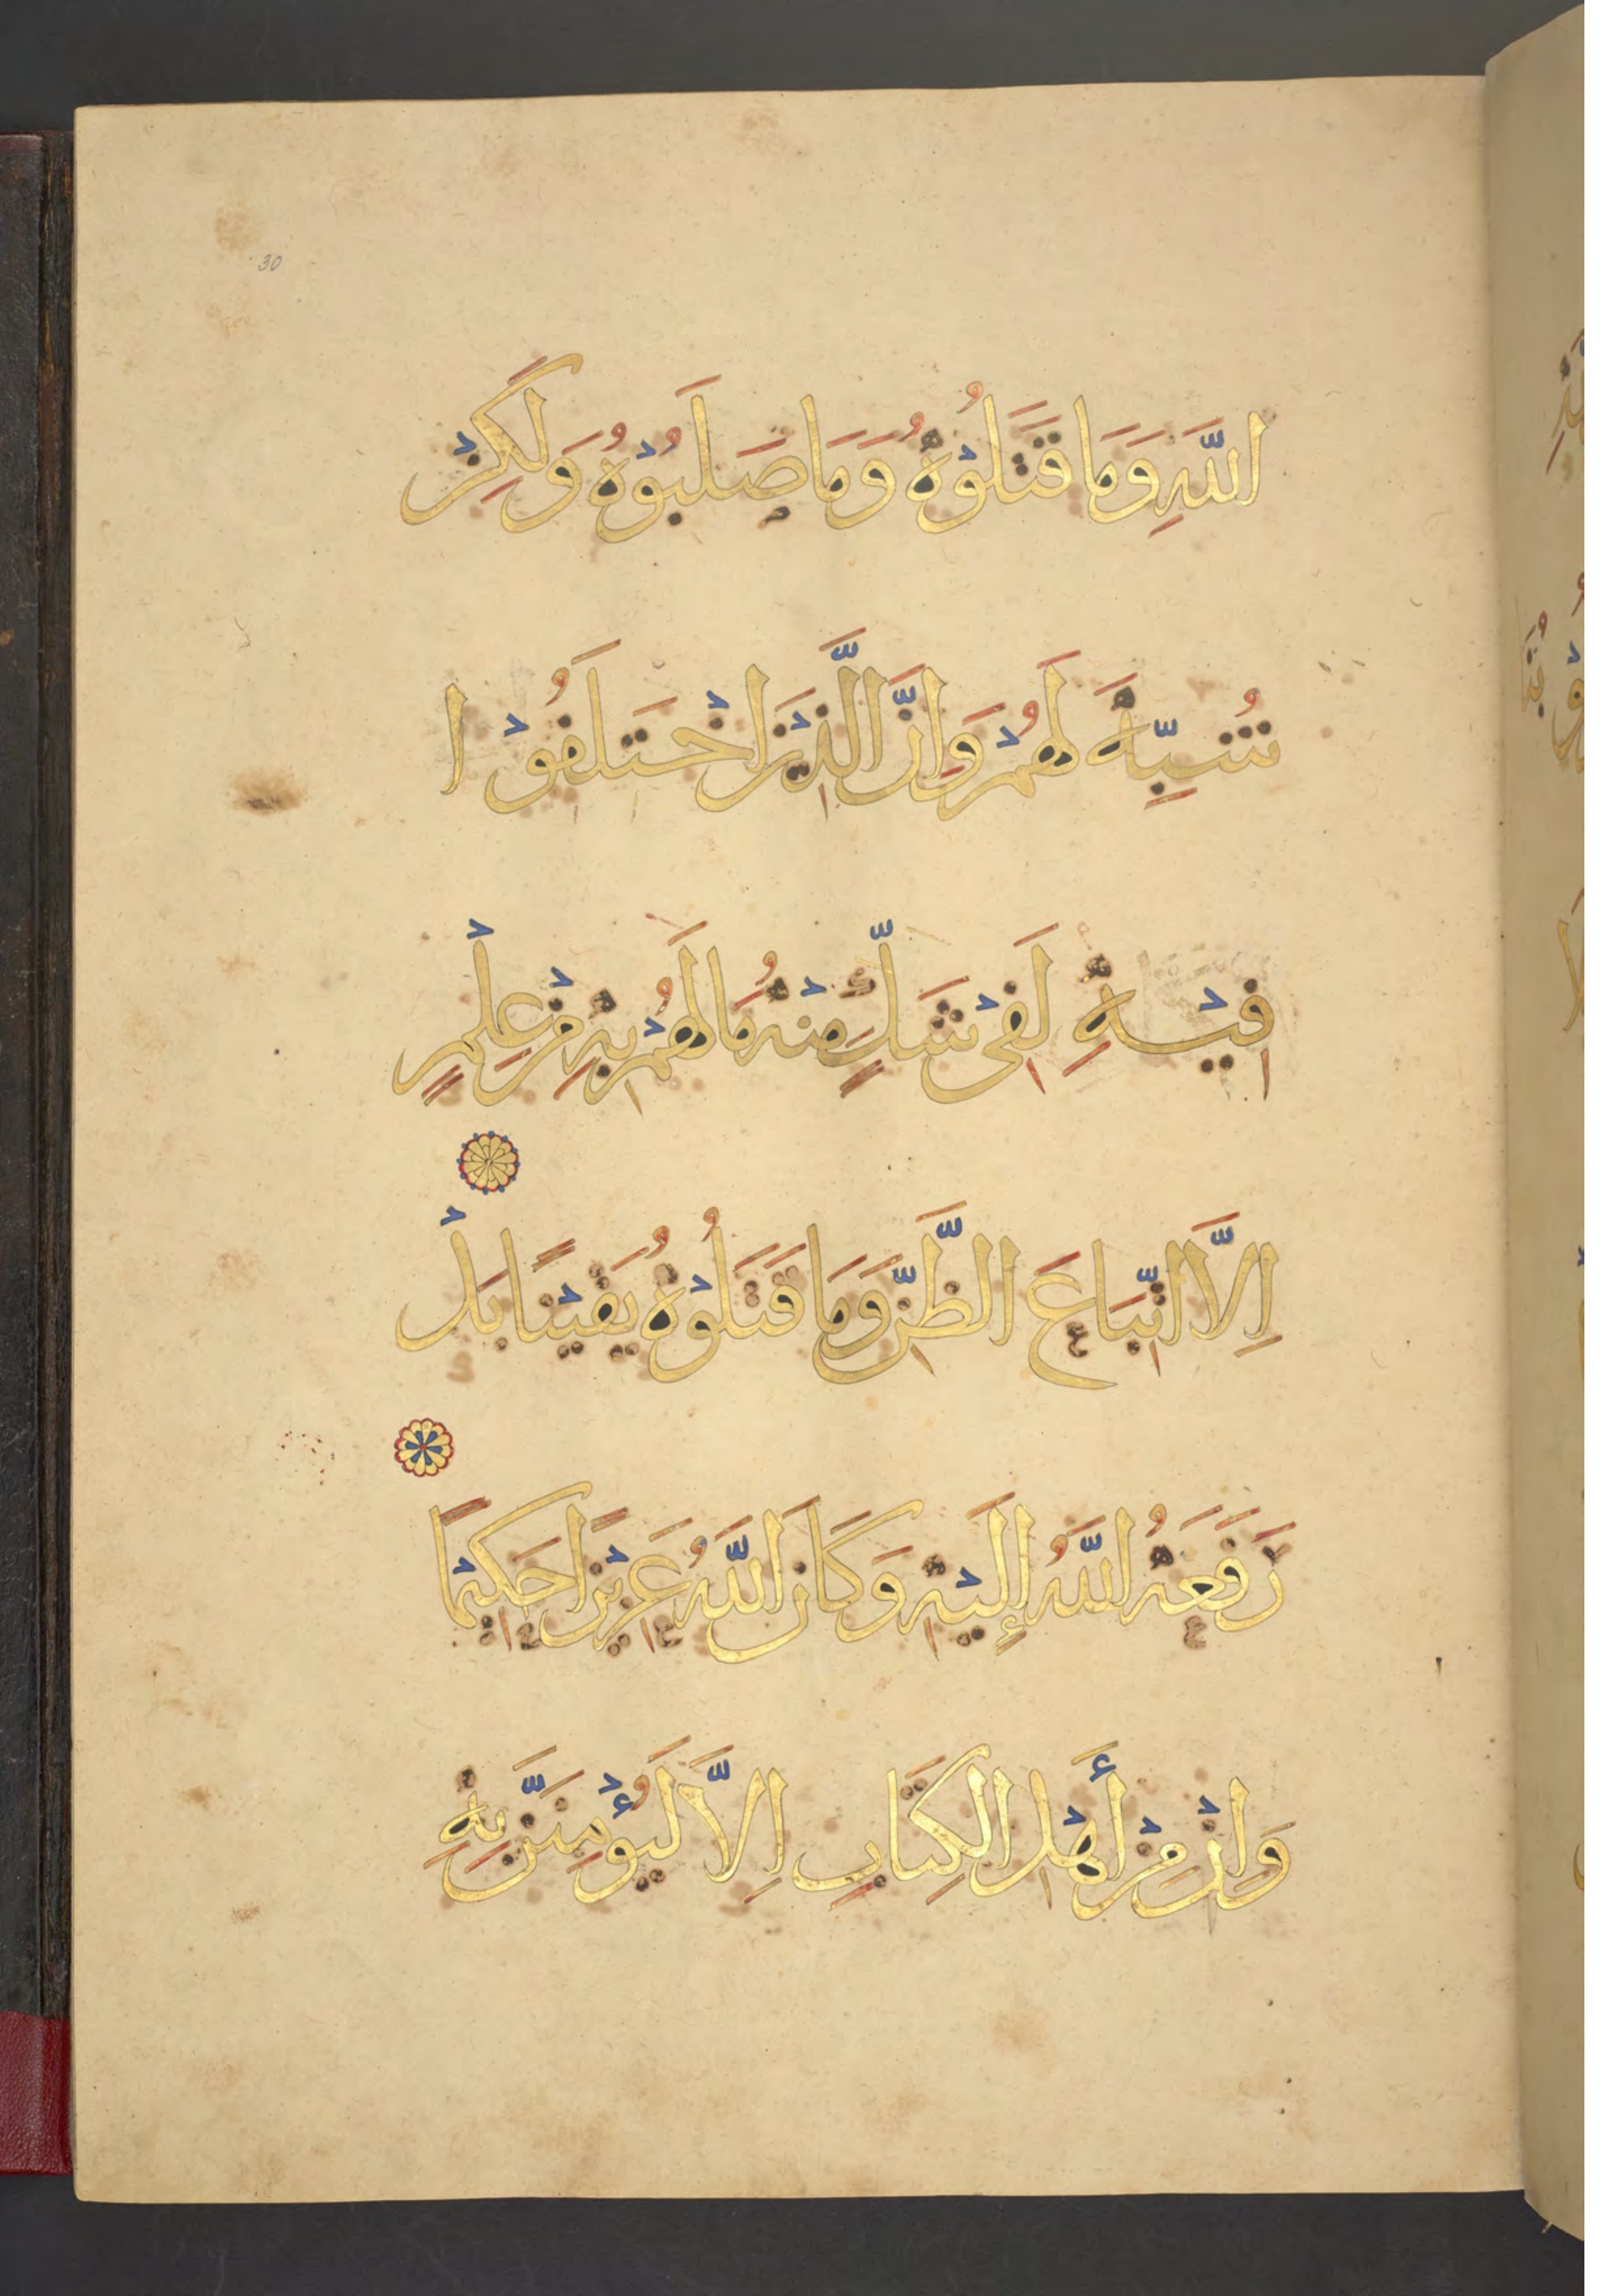 30
اللَّهِ وَمَا قَتَلُوْهُ وَمَا صَلَبُوْهُ وَلَكِنْ
شُبِّهَ لَهُمْ وَاِنَّ الَّذِيْنَ اخْتَلَفُوْا
فِيْهِ لَفِىْ شَكٍّ مِنْهُ مَا لَهُمْ بِهِ مِنْ عِلْمٍ
اِلاَّ اتِّبَاعَ الظَّنِّ وَمَا قَتَلُوْهُ يَقِيْنًا بَلْ
رَفَعَهُ اللَّهُ إِلَيْهِ وَكَانَ اللَّهُ عَزِيْزًا حَكِيْمًا
وَاِنْ مِنْ أَهْلِ الْكِتَابِ اِلاَّ لَيُؤْمِنَنَّ بِهِ